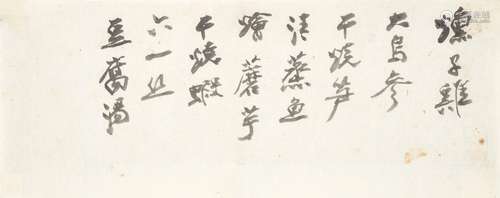 燻子雞
大烏參
干燒笋
清蒸魚
燴蘑芋
干燒蝦
六一丝
豆腐湯